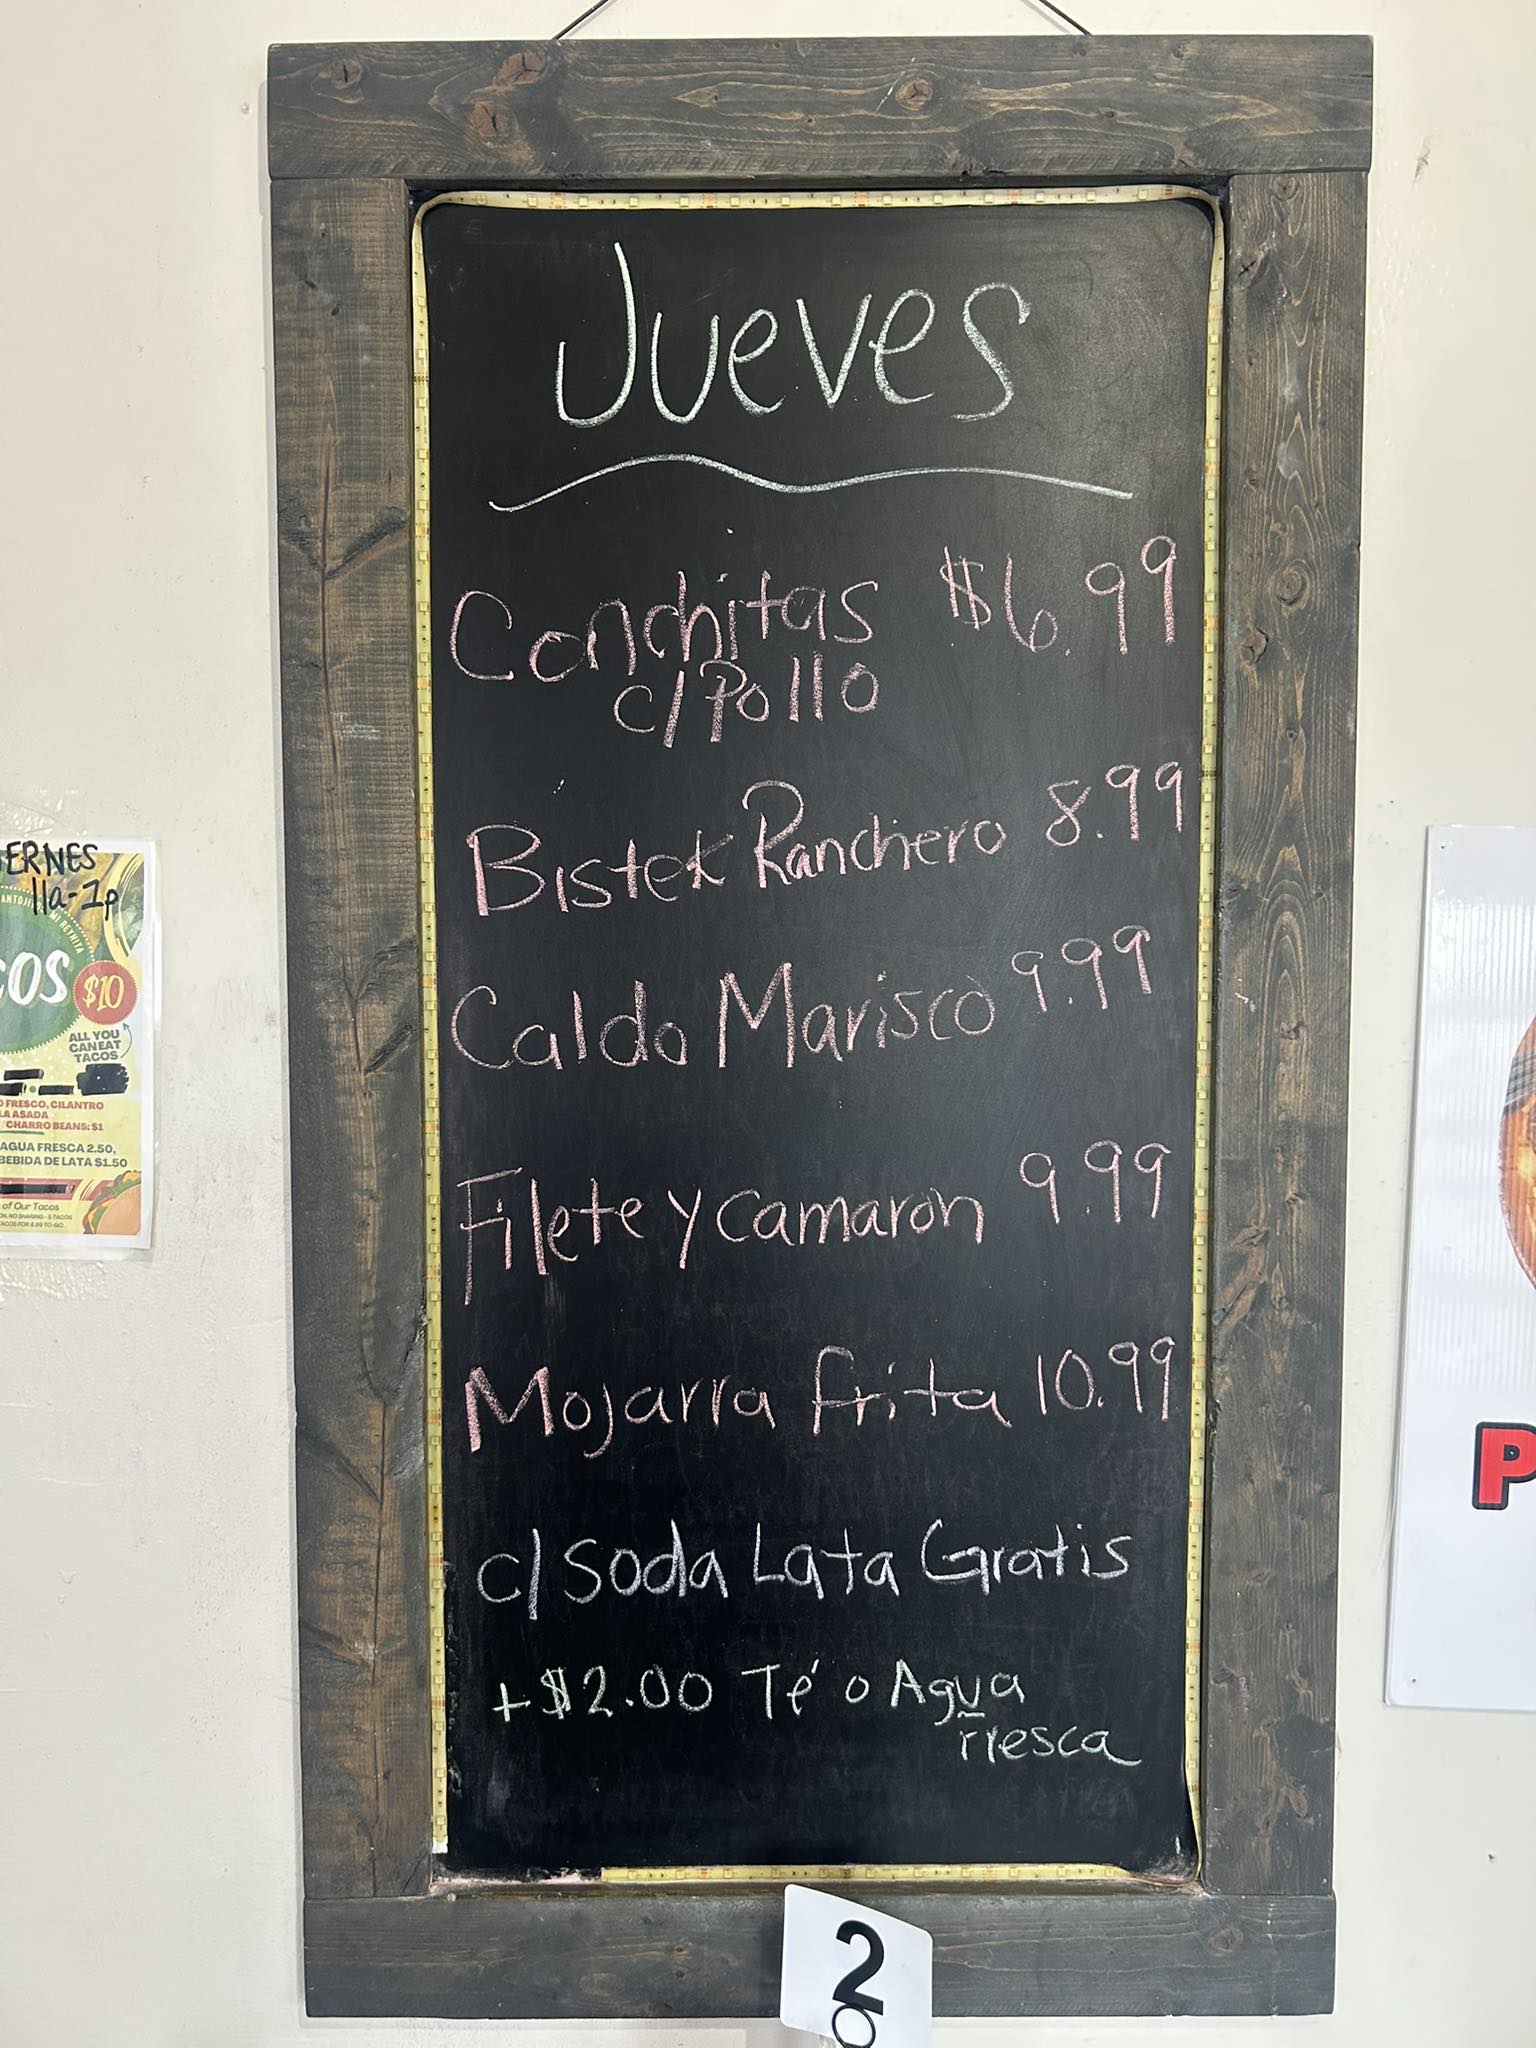 Jueves
Conchitas $6.99
c/Pollo
Bistek Ranchero 8.99
Caldo Marisco 9.99
Filete y camaron 9.99
Mojarra frita 10.99
c/ Soda Lata Gratis
+ $2.00 Té o Agua
fresca
2
ERNES
11a-1p
COS
$10
ALL YOU
CAN EAT
TACOS
O FRESCO, CILANTRO
LA ASADA
CHARRO BEANS: $1
AGUA FRESCA 2.50,
BEBIDA DE LATA $1.50
of Our Tacos
P